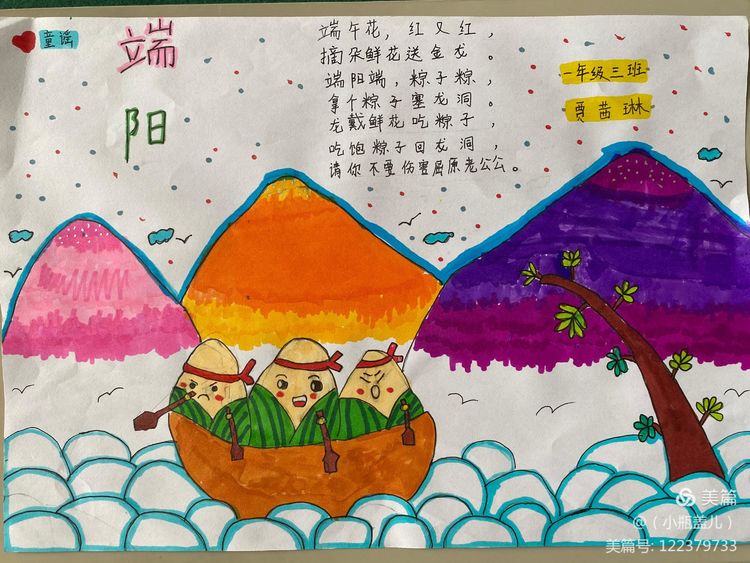 童谣
端
阳
端午花，红又红，
摘朵鲜花送金龙。
端阳端，粽子粽，
拿个粽子塞龙洞。
龙戴鲜花吃粽子，
吃饱粽子回龙洞，
请你不要伤害屈原老公公。
一年级三班
贾茜琳
美篇
@（小瓶盖儿）
美篇号: 122379733